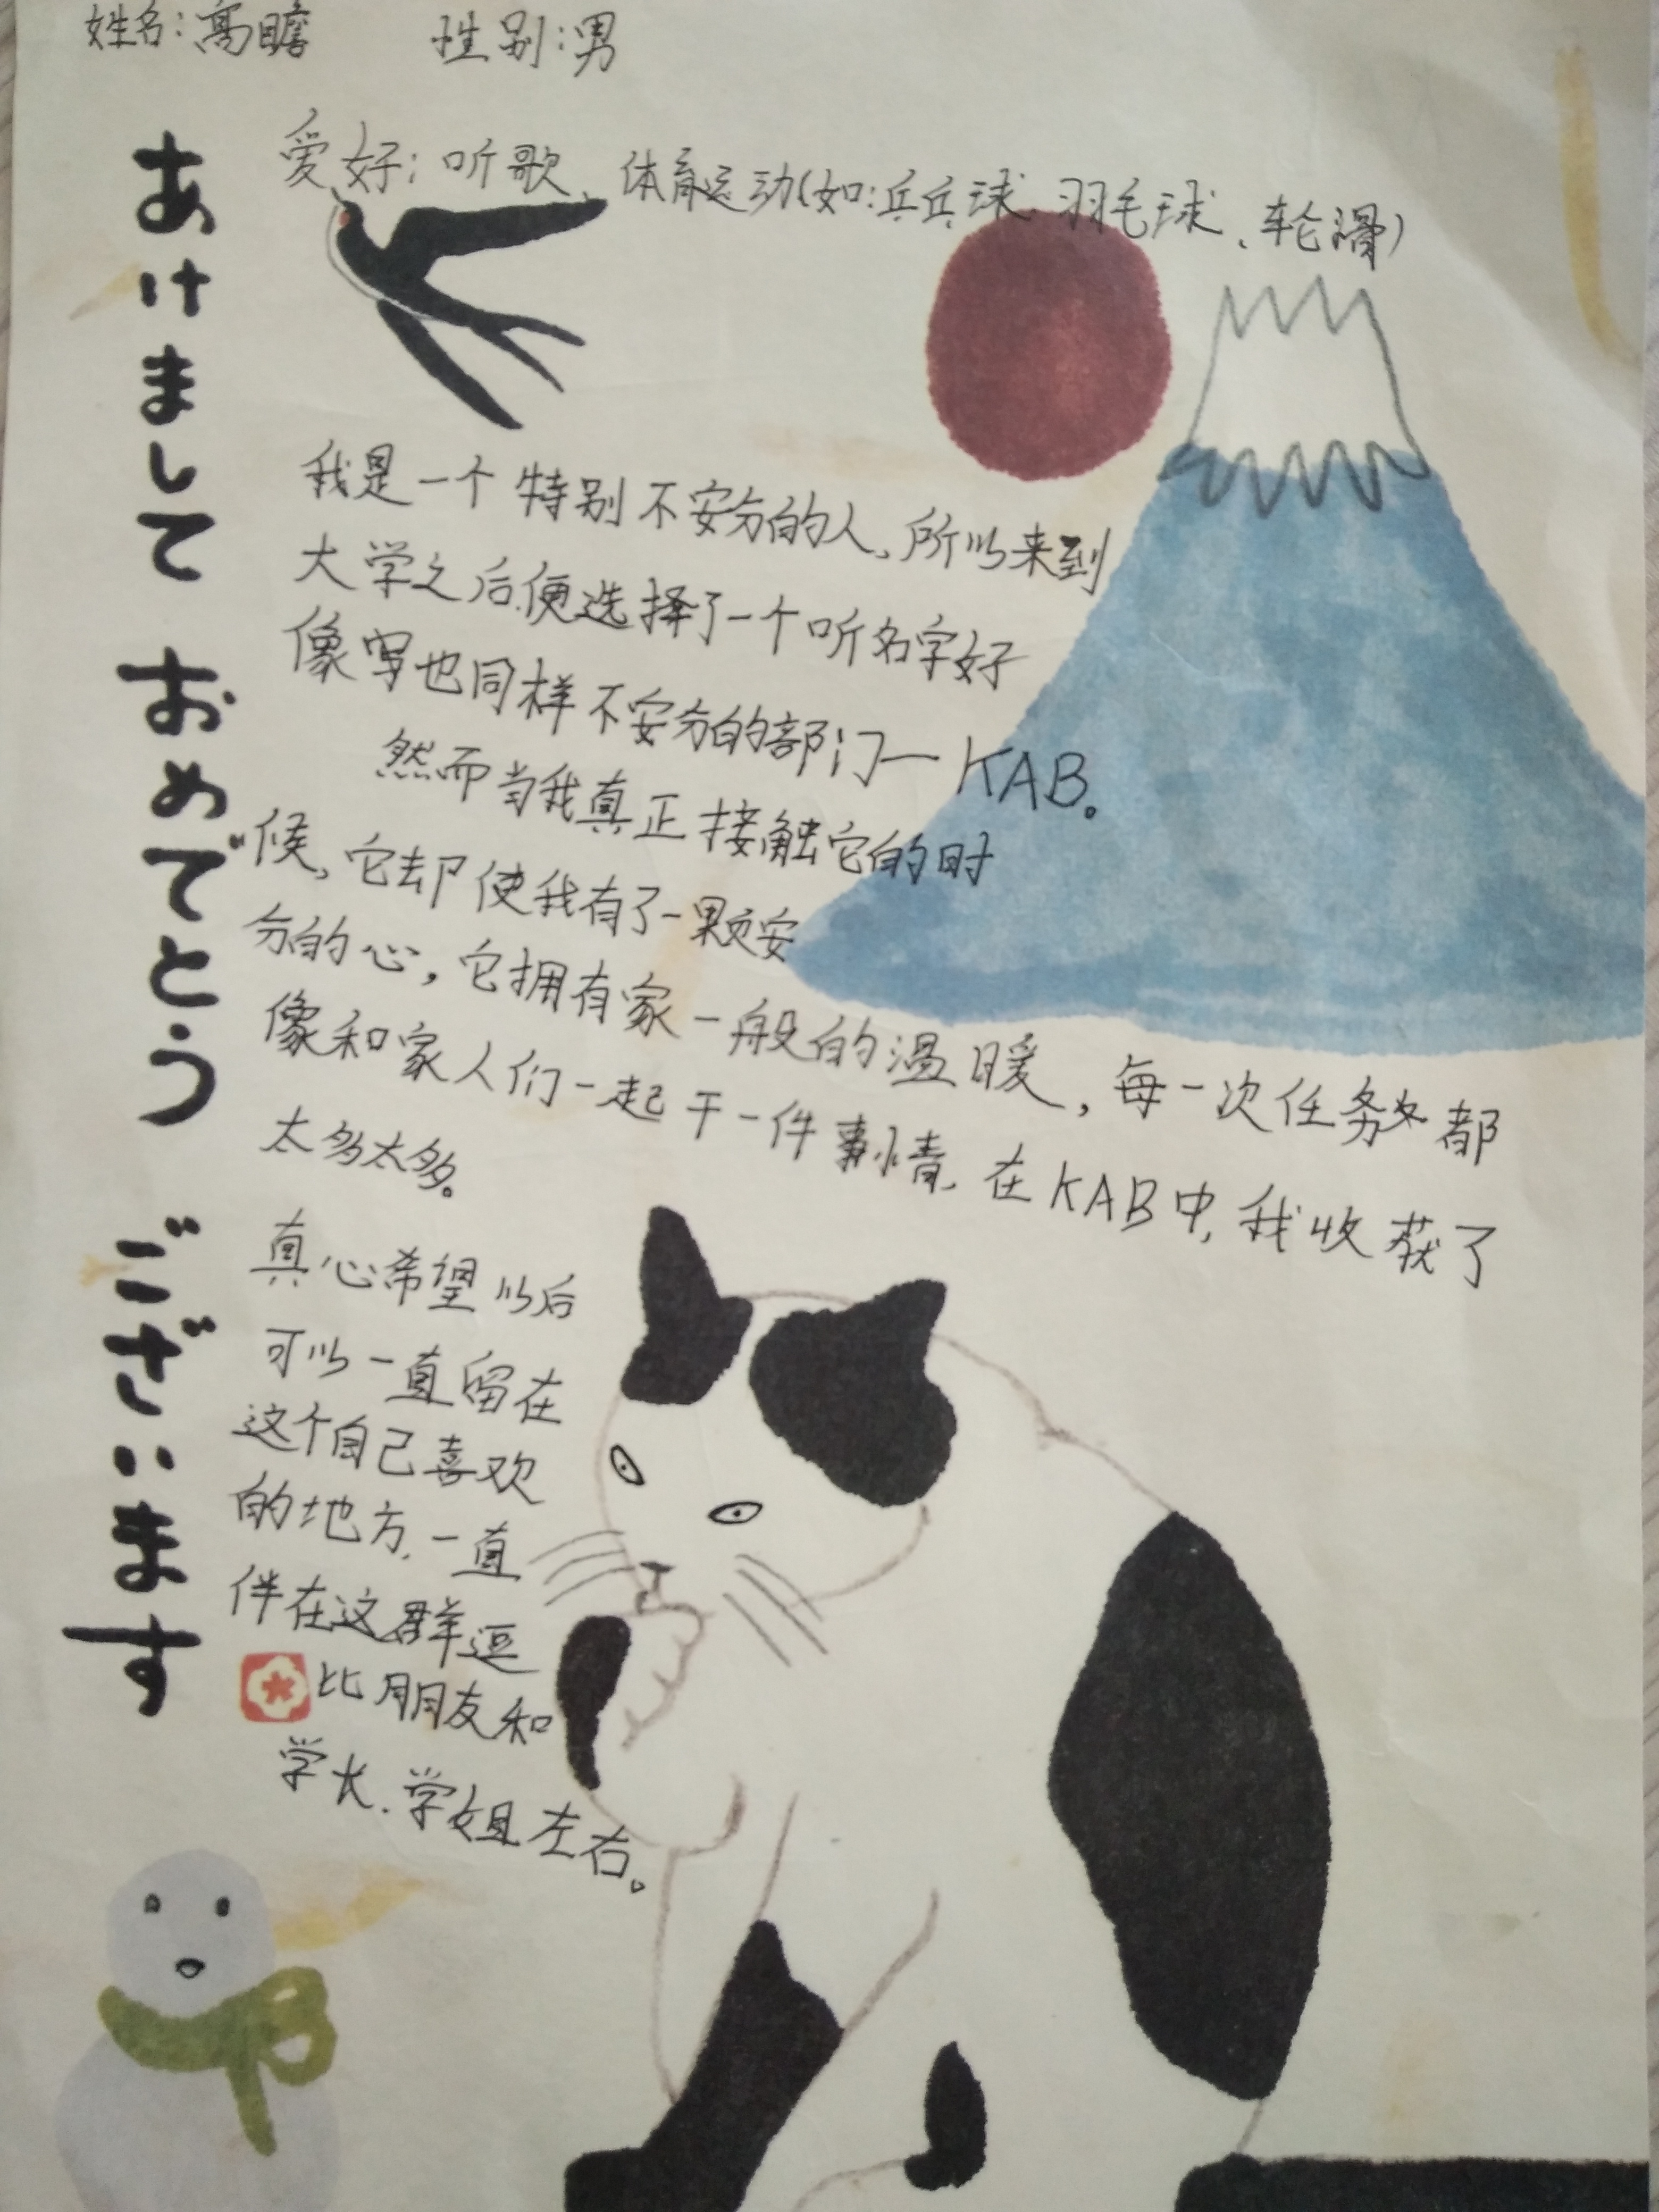 姓名：高瞻 性别：男
爱好：听歌、体育运动（如：乒乓球、羽毛球、轮滑）
我是一个特别不安分的人，所以来到
大学之后，便选择了一个听名字好
像写也同样不安分的部门—KAB。
然而当我真正接触它的时
候，它却使我有了一颗安
分的心，它拥有家一般的温暖，每一次任务都
像和家人们一起干一件事情，在KAB中，我收获了
太多太多。
真心希望以后
可以一直留在
这个自己喜欢
的地方，一直
伴在这群逗
比朋友和
学长、学姐左右。
あけまして おめでとう ございます